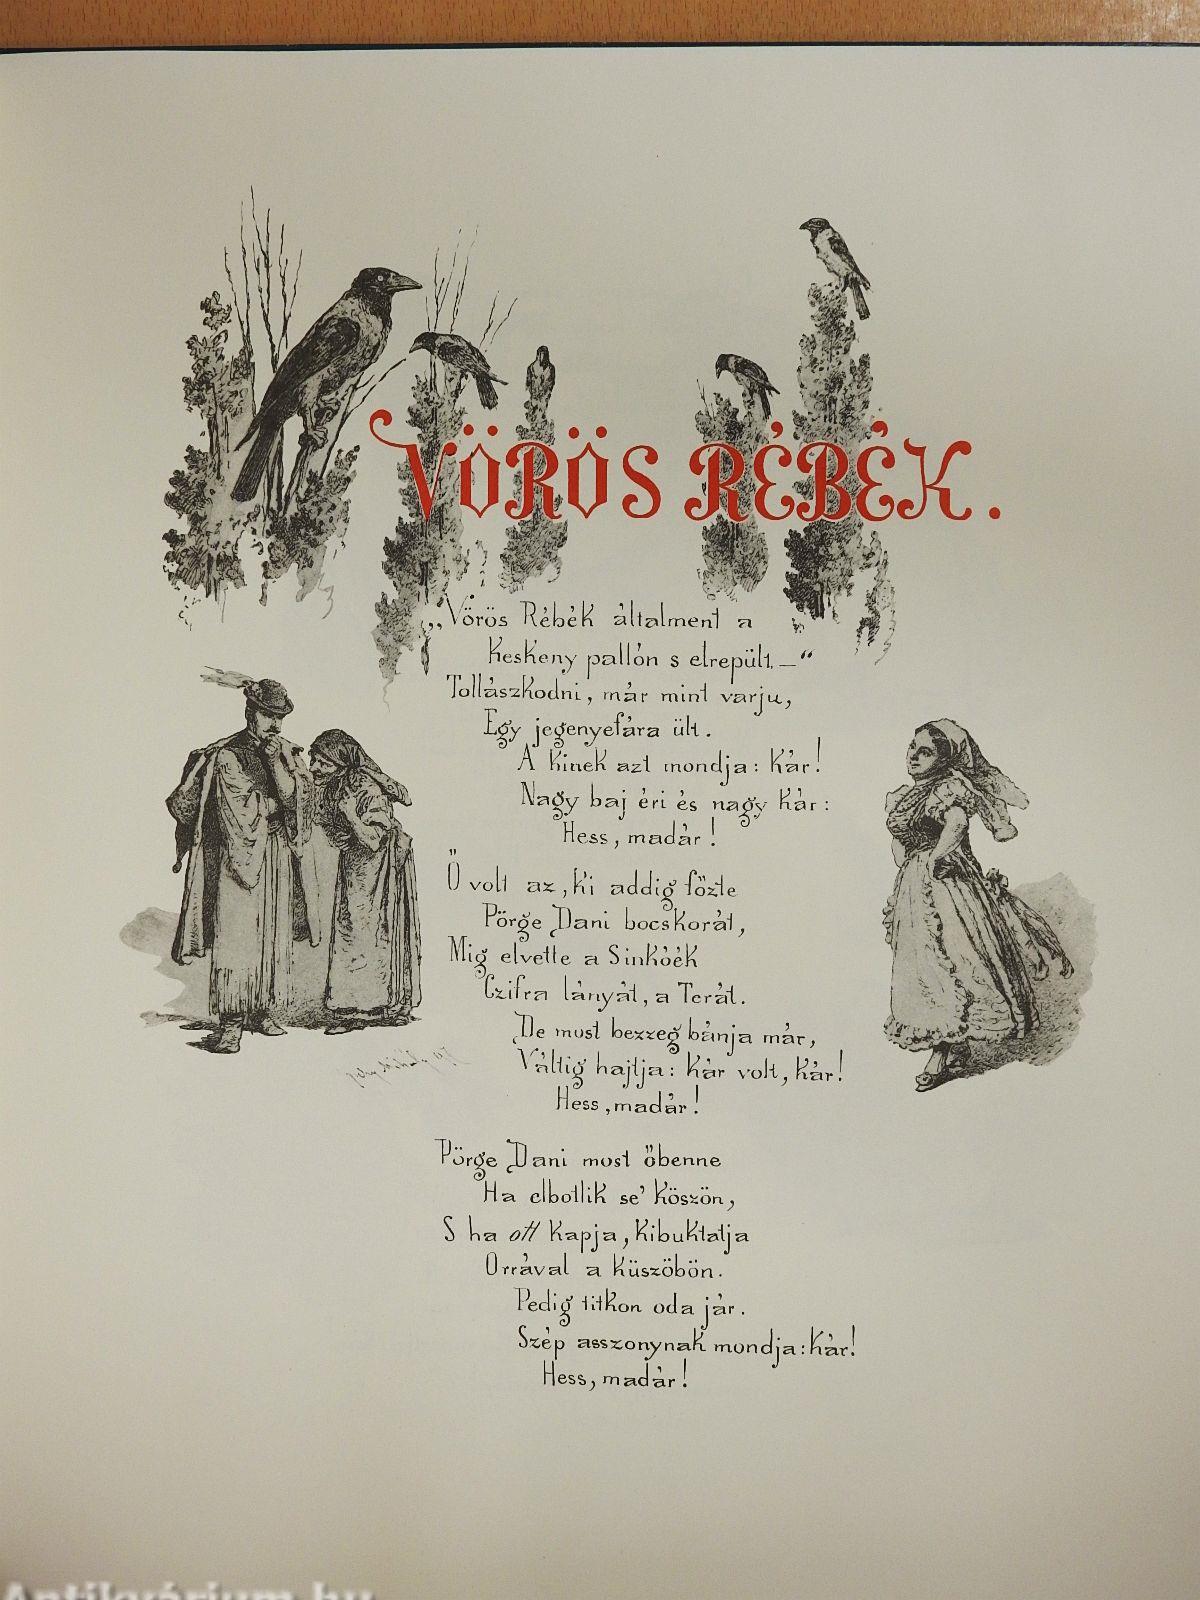 VÖRÖS RÉBÉK.
„Vörös Rébék általment a
Keskeny pallón s elrepült. —“
Tollászkodni, már mint varju,
Egy jegenyefára ült.
A kinek azt mondja: kár!
Nagy baj éri és nagy kár:
Hess, madár!
Ő volt az, ki addig főzte
Pörge Dani bocskorát,
Mig elvette a Sinkóék
Czifra lányát, a Terát.
De most bezzeg bánja már,
Váltig hajtja: kár volt, kár!
Hess, madár!
Pörge Dani most őbenne
Ha elbotlik se' köszön,
S ha ott kapja, kibuktatja
Orrával a küszöbön.
Pedig titkon oda jár.
Szép asszonynak mondja: kár!
Hess, madár!
Antikvárium.hu